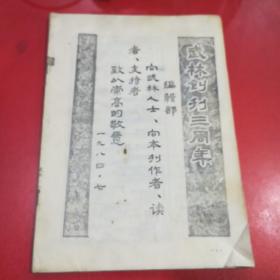 武林创刊三周年
编辑部
向武林人士、向本刊作者、读
者、支持者
致以崇高的敬意
一九八四·七